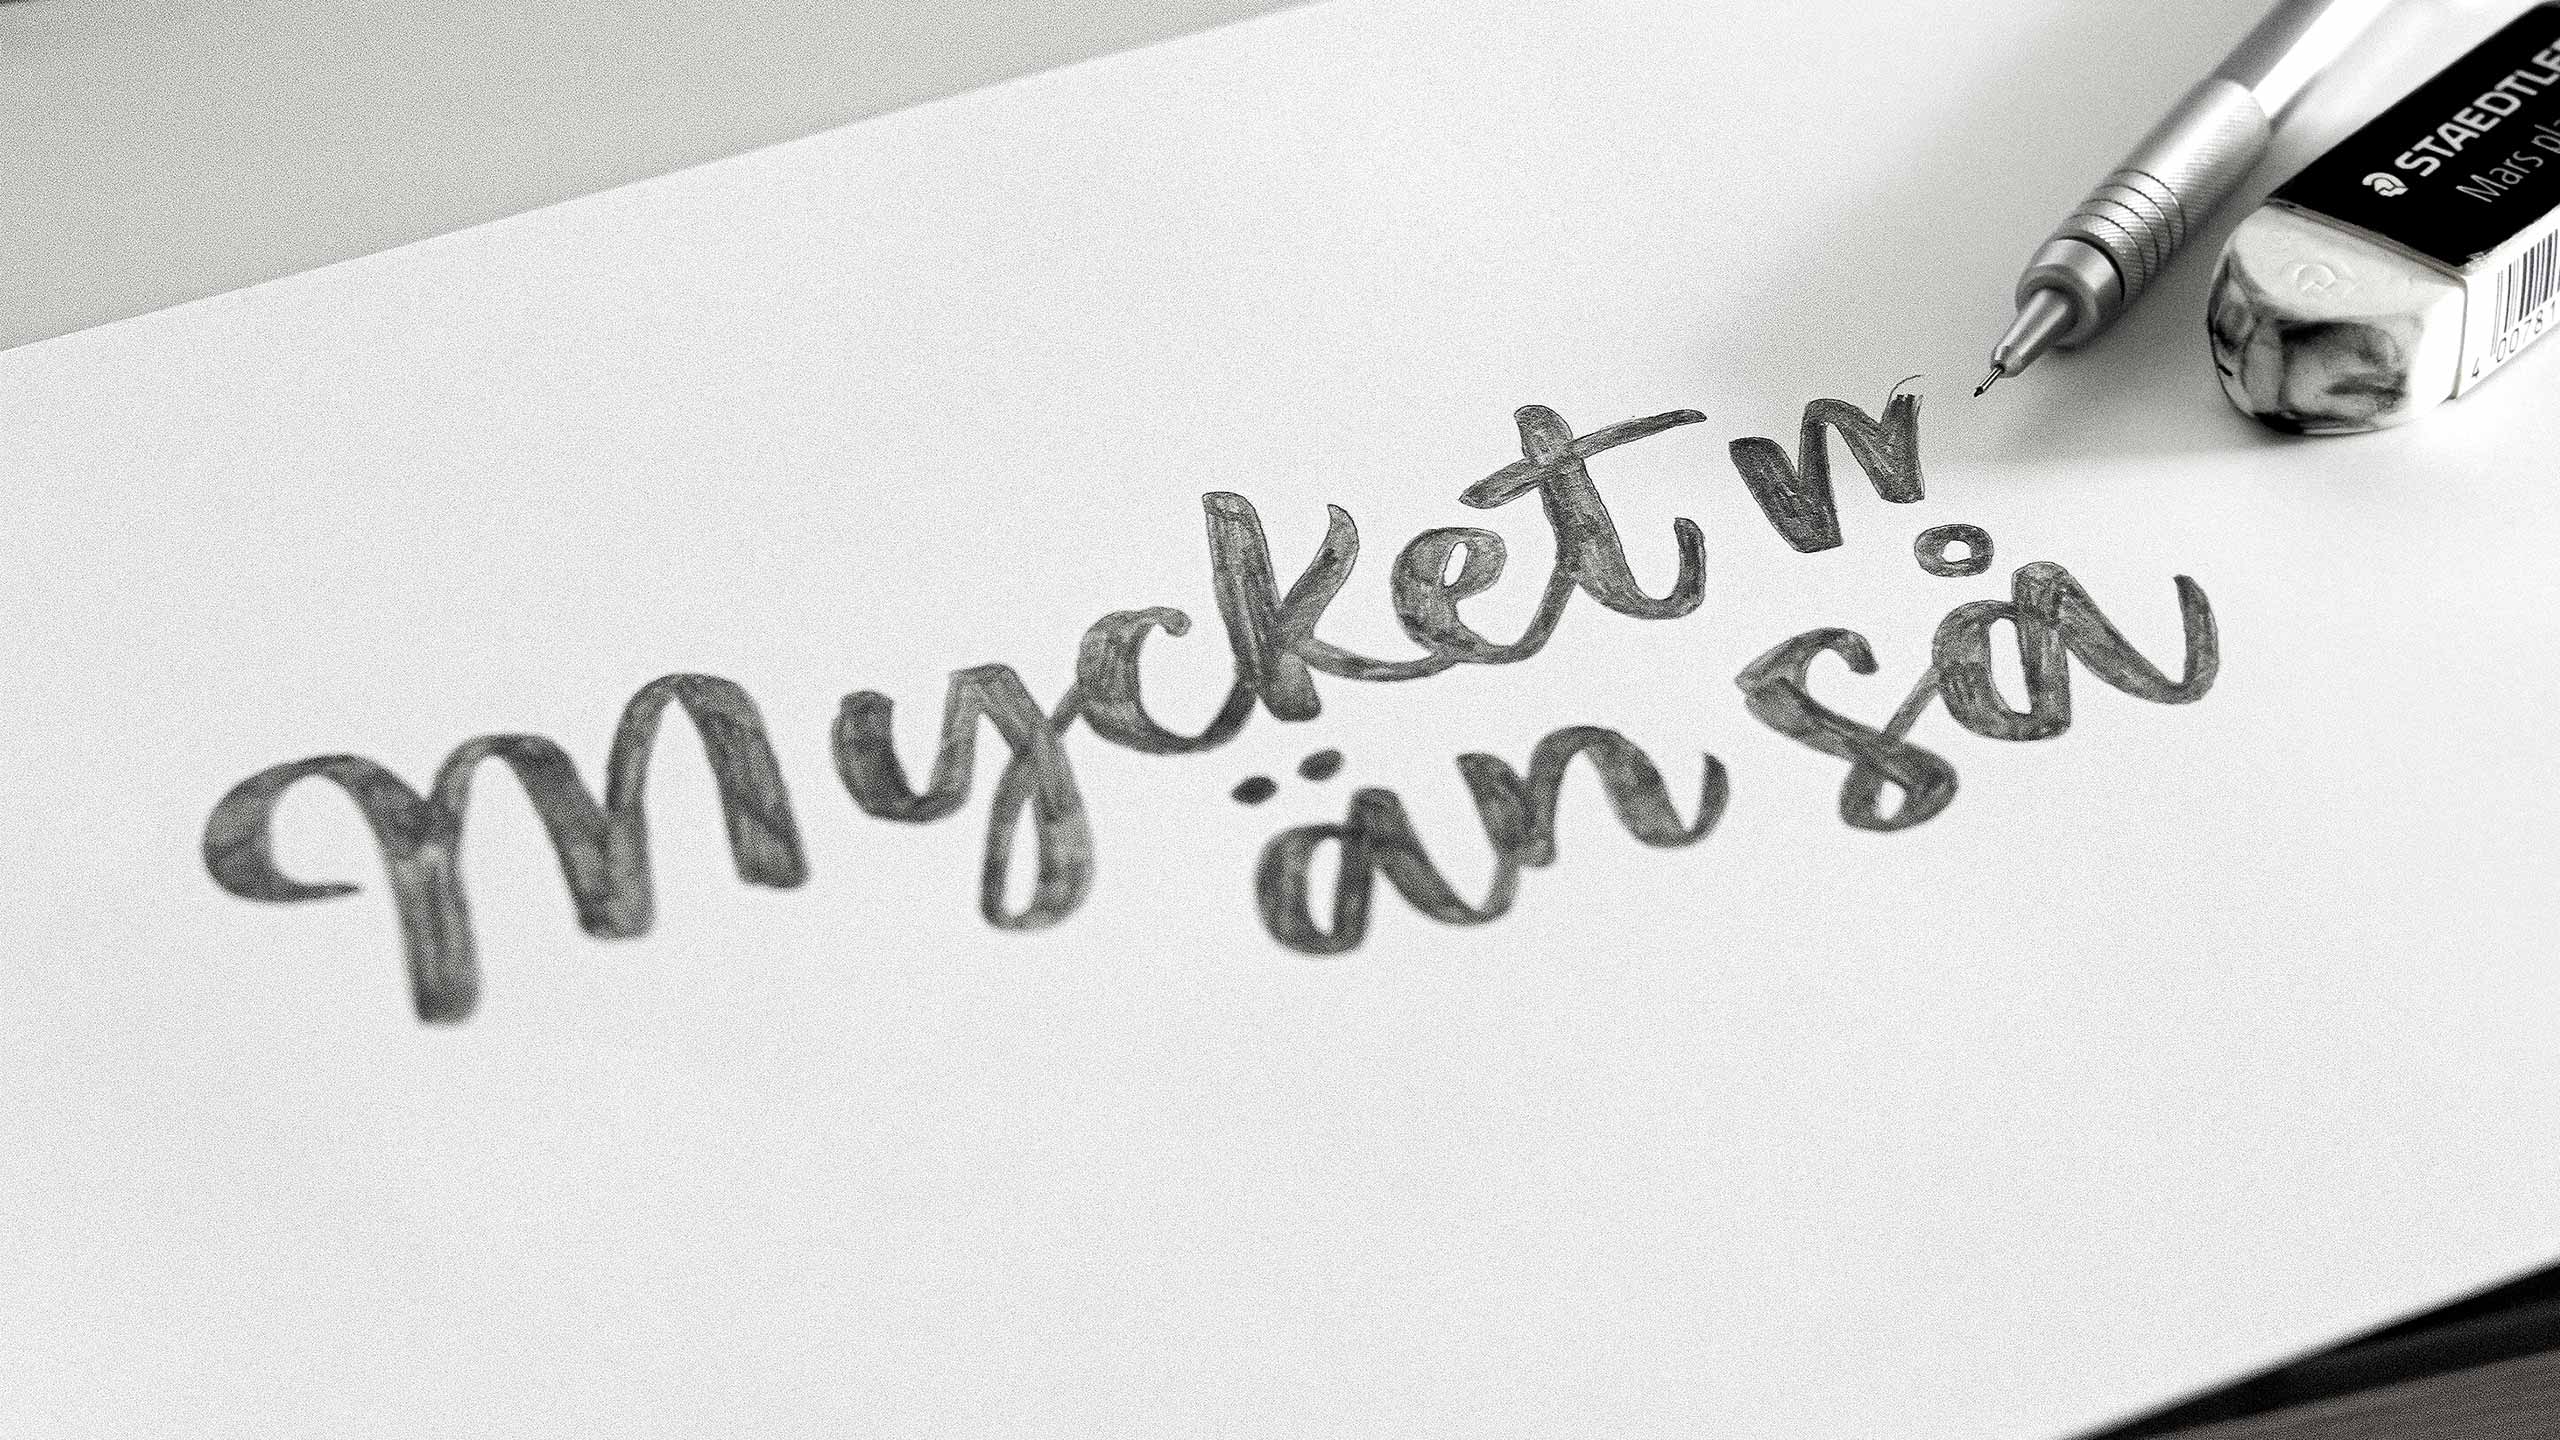 Mycket n
än så
STAEDTLE
Mars pla
4 00781